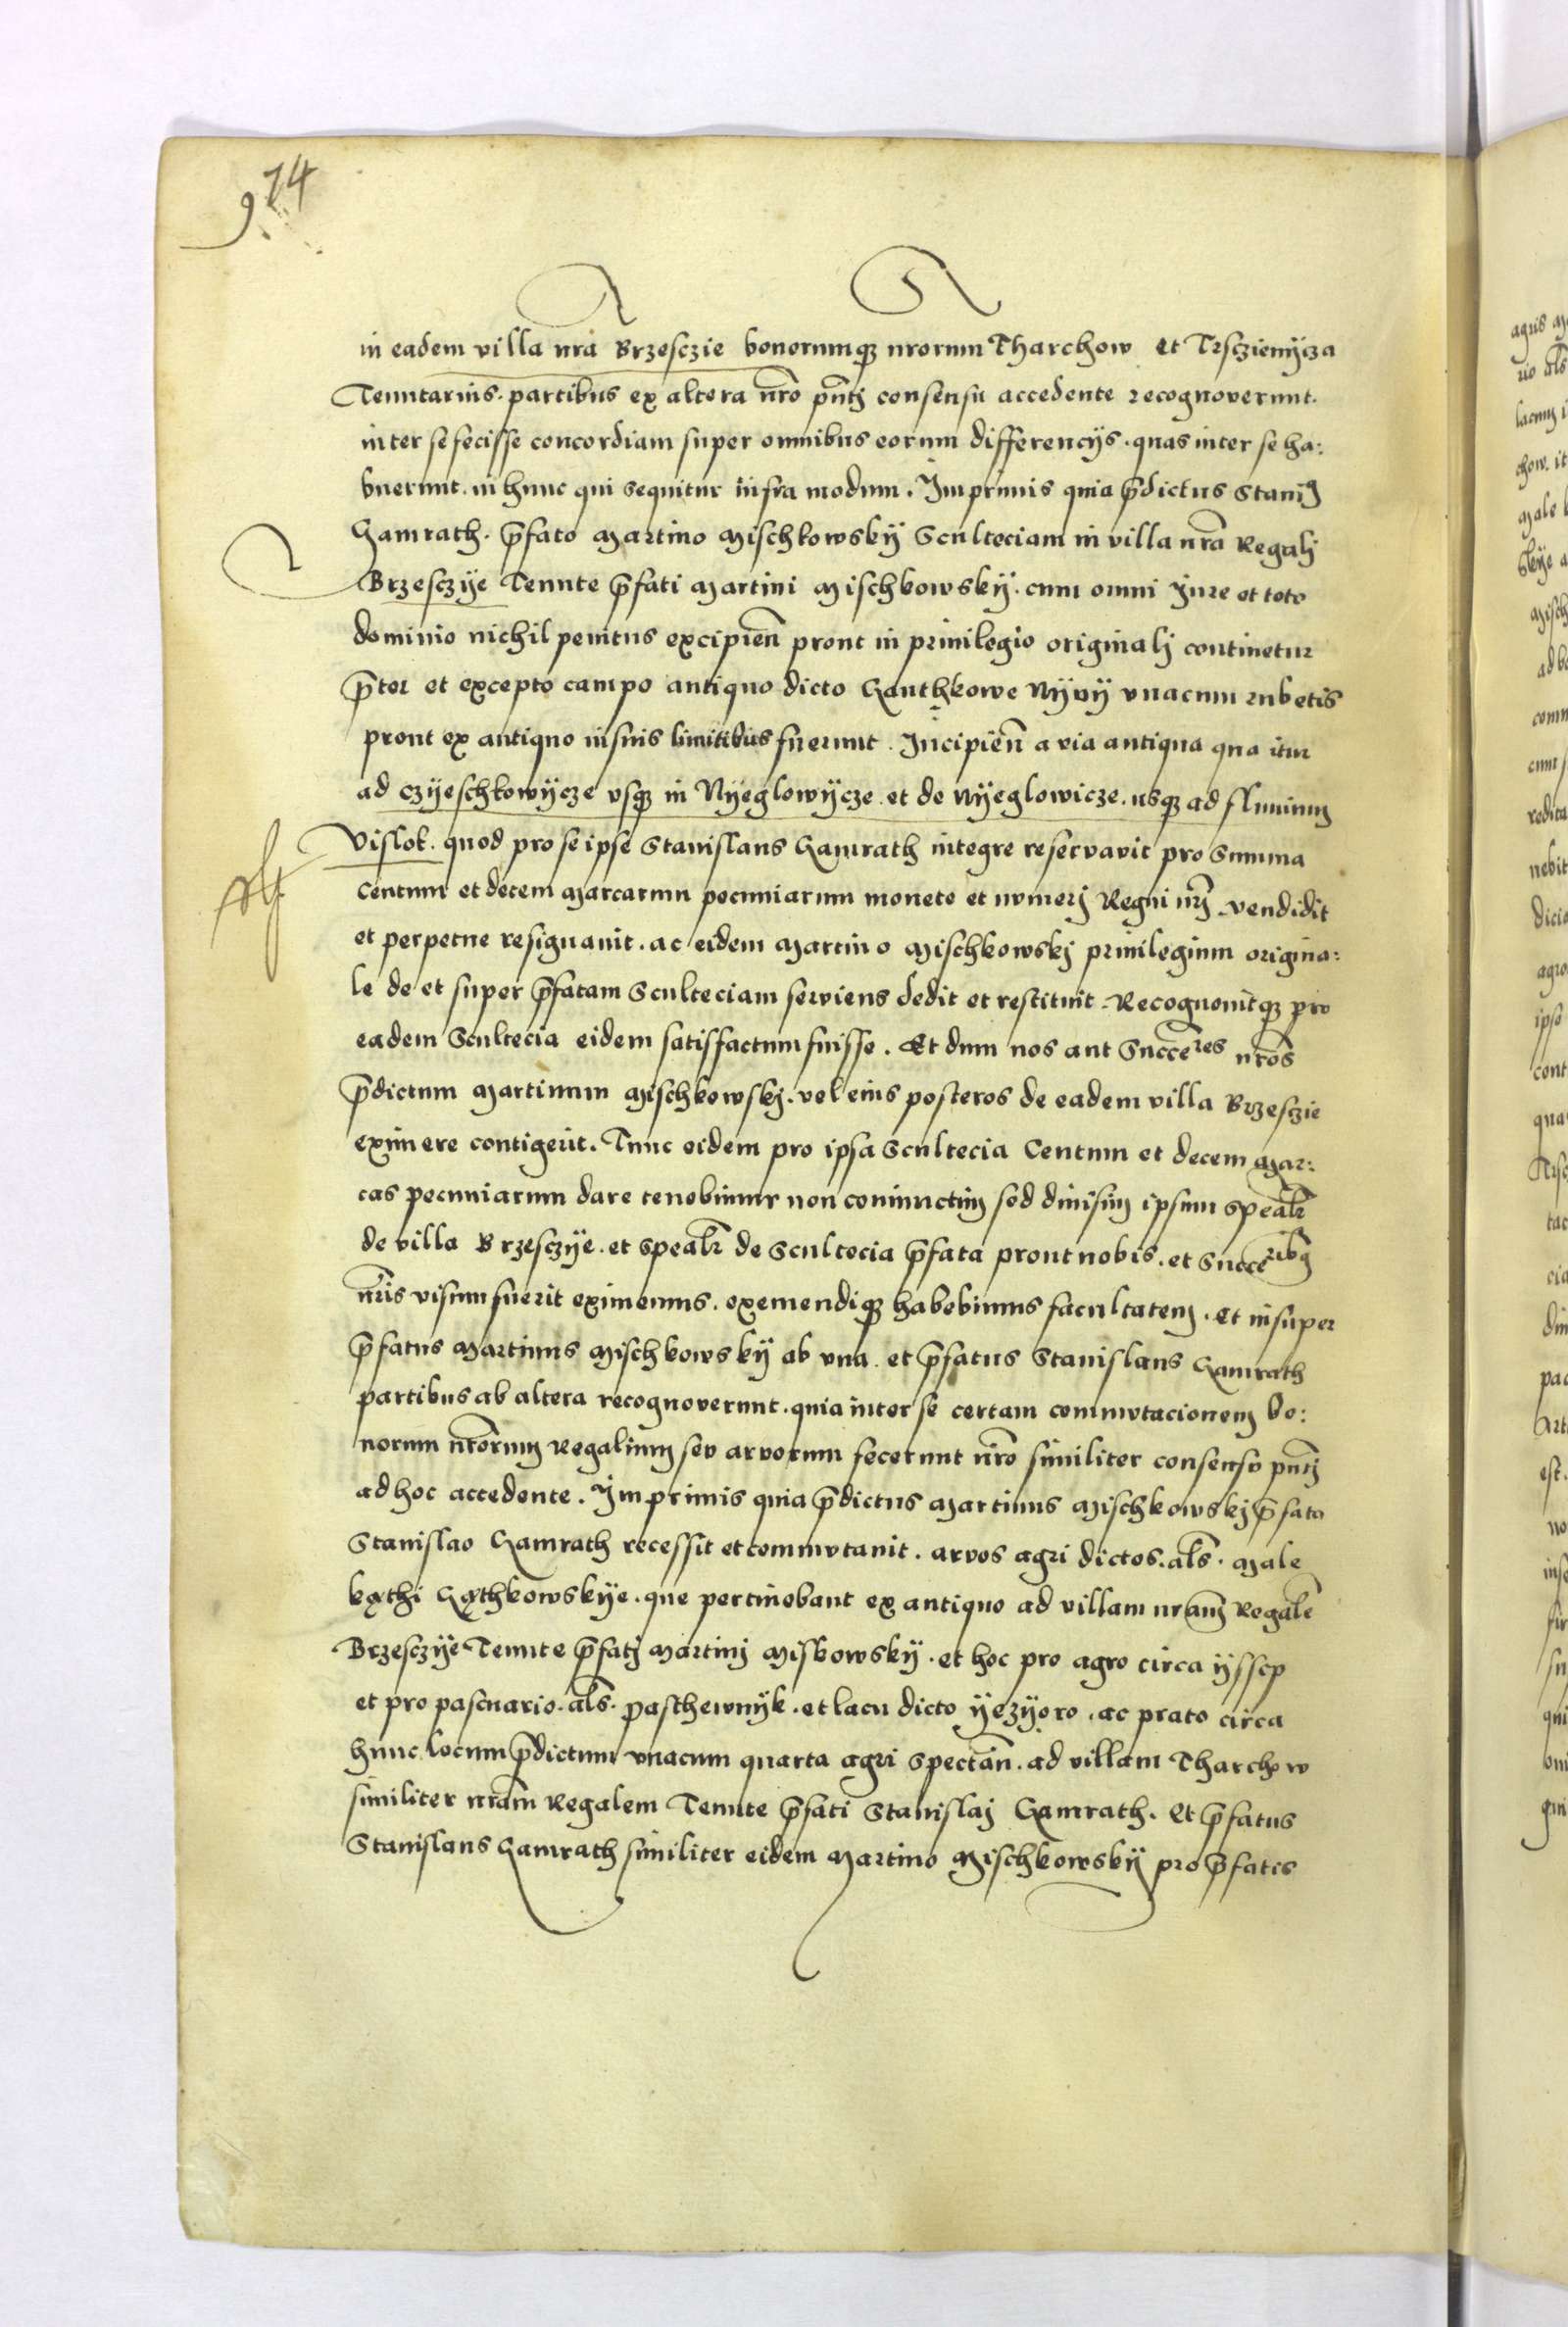 974
in eadem villa nra Brzesczie bonorumq nrorum Tharchow et Trscziemycza
Tenutarius. partibus ex altera nro pntj consensu accedente recognoverunt.
inter se fecisse concordiam super omnibus eorum differencijs. quas inter se ha:
buerunt. in hunc qui sequitur infra modum. Imprimis quia pdictus Stanis
Gamrath. pfato Martino Mischkowskÿ Sculteciam in villa nra Regalj
Brzesczÿe Tenute pfati Martini Mischkowskÿ. cum omni Jure et toto
dominio nichil penitus excipien prout in privilegio originalj continetur
pter et excepto campo antiquo dicto Ganthkowe Nÿvÿ unacum rubetis
prout ex antiquo in suis limitibus fuerunt. Incipien a via antiqua qua itur
ad Czÿeschkowÿcze vsq in Nÿeglowÿcze. et de Nÿeglowicze. usq ad fluvium
Vislok. quod pro se ipse Stanislaus Gamrath integre reservavit pro Summa
Centum et decem Marcarum pecuniarum monete et numerj Regni nrj vendidit
et perpetue resignavit. ac eidem Martino Mischkowskj privilegium origina:
le de et super pfatam Sculteciam serviens dedit et restituit. Recognovitq pro
eadem Scultecia eidem satisfactum fuisse. Et dum nos aut Succeres nros
pdictum Martinum Mischkowskj. vel eius posteros de eadem villa Brzesczie
eximere contigerit. Tunc eidem pro ipsa Scultecia Centum et decem Mar:
cas pecuniarum dare tenebimur non coniunctim sed divisim ipsum spealr
de villa Brzesczÿe. et spealr de Scultecia pfata prout nobis. et Succeribq
nris visum fuerit eximemus. exemendiq habebimus facultatem. Et insuper
pfatus Martinus Mischkowskÿ ab una. et pfatus Stanislaus Gamrath
partibus ab altera recognoverunt. quia inter se certam commutacionem bo:
norum nrorum Regalium seu arvorum fecerunt nro similiter consensu pntj
ad hoc accedente. Imprimis quia pdictus Martinus Mischkowskj pfato
Stanislao Gamrath recessit et commutavit. arvos agri dictos. als. Male
kąthi Gąthkowskÿe. que pertinebant ex antiquo ad villam nram Regale
Brzesczÿe Tenute pfatj Martinj Miskowskÿ. et hoc pro agro circa ÿssep
et pro pascuario. als. paschewnÿk. et lacu dicto ÿezÿoro. ac prato circa
hunc locum pdictum unacum quarta agri spectan. ad villam Tharchow
similiter nram Regalem Tenute pfati Stanislaj Gamrath. Et pfatus
Stanislaus Gamrath similiter eidem Martino Mischkowskÿ pro pfatis